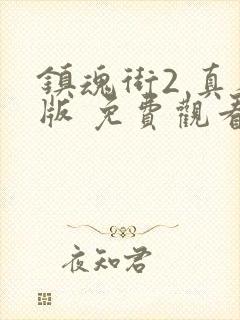 鎮魂街2 真
版 免費觀看
夜知君